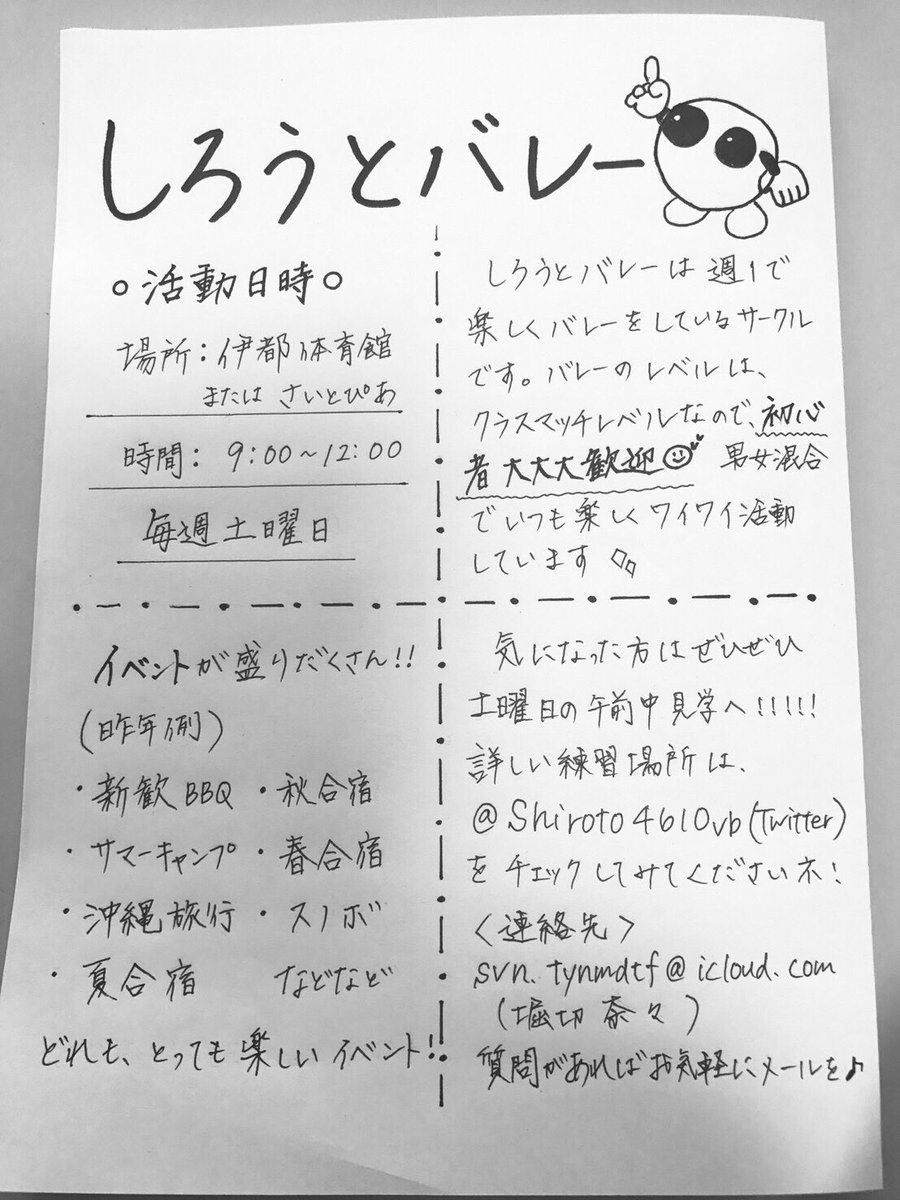 しろうとバレー
○活動日時○
場所：伊都体育館
または さいとぴあ
時間：9:00～12:00
毎週土曜日
しろうとバレーは週1で
楽しくバレーをしているサークル
です。バレーのレベルは、
クラスマッチレベルなので、初心
者大大大歓迎 男女混合
でいつも楽しくワイワイ活動
しています
イベントが盛りだくさん!!
(昨年例)
・新歓BBQ ・秋合宿
・サマーキャンプ ・春合宿
・沖縄旅行 ・スノボ
・夏合宿 などなど
どれも、とっても楽しいイベント!!
気になった方はぜひぜひ
土曜日の午前中見学へ!!!!!
詳しい練習場所は、
@Shiroto4610vb(Twitter)
をチェックしてみてくださいネ!
<連絡先>
svn.tynmdtf@icloud.com
(堀切 奈々)
質問があればお気軽にメールを♪